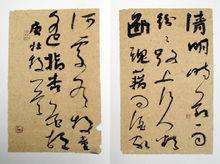 清明時節雨
紛紛路上行人欲
斷魂藉問酒家
何處有牧童
遙指杏花村